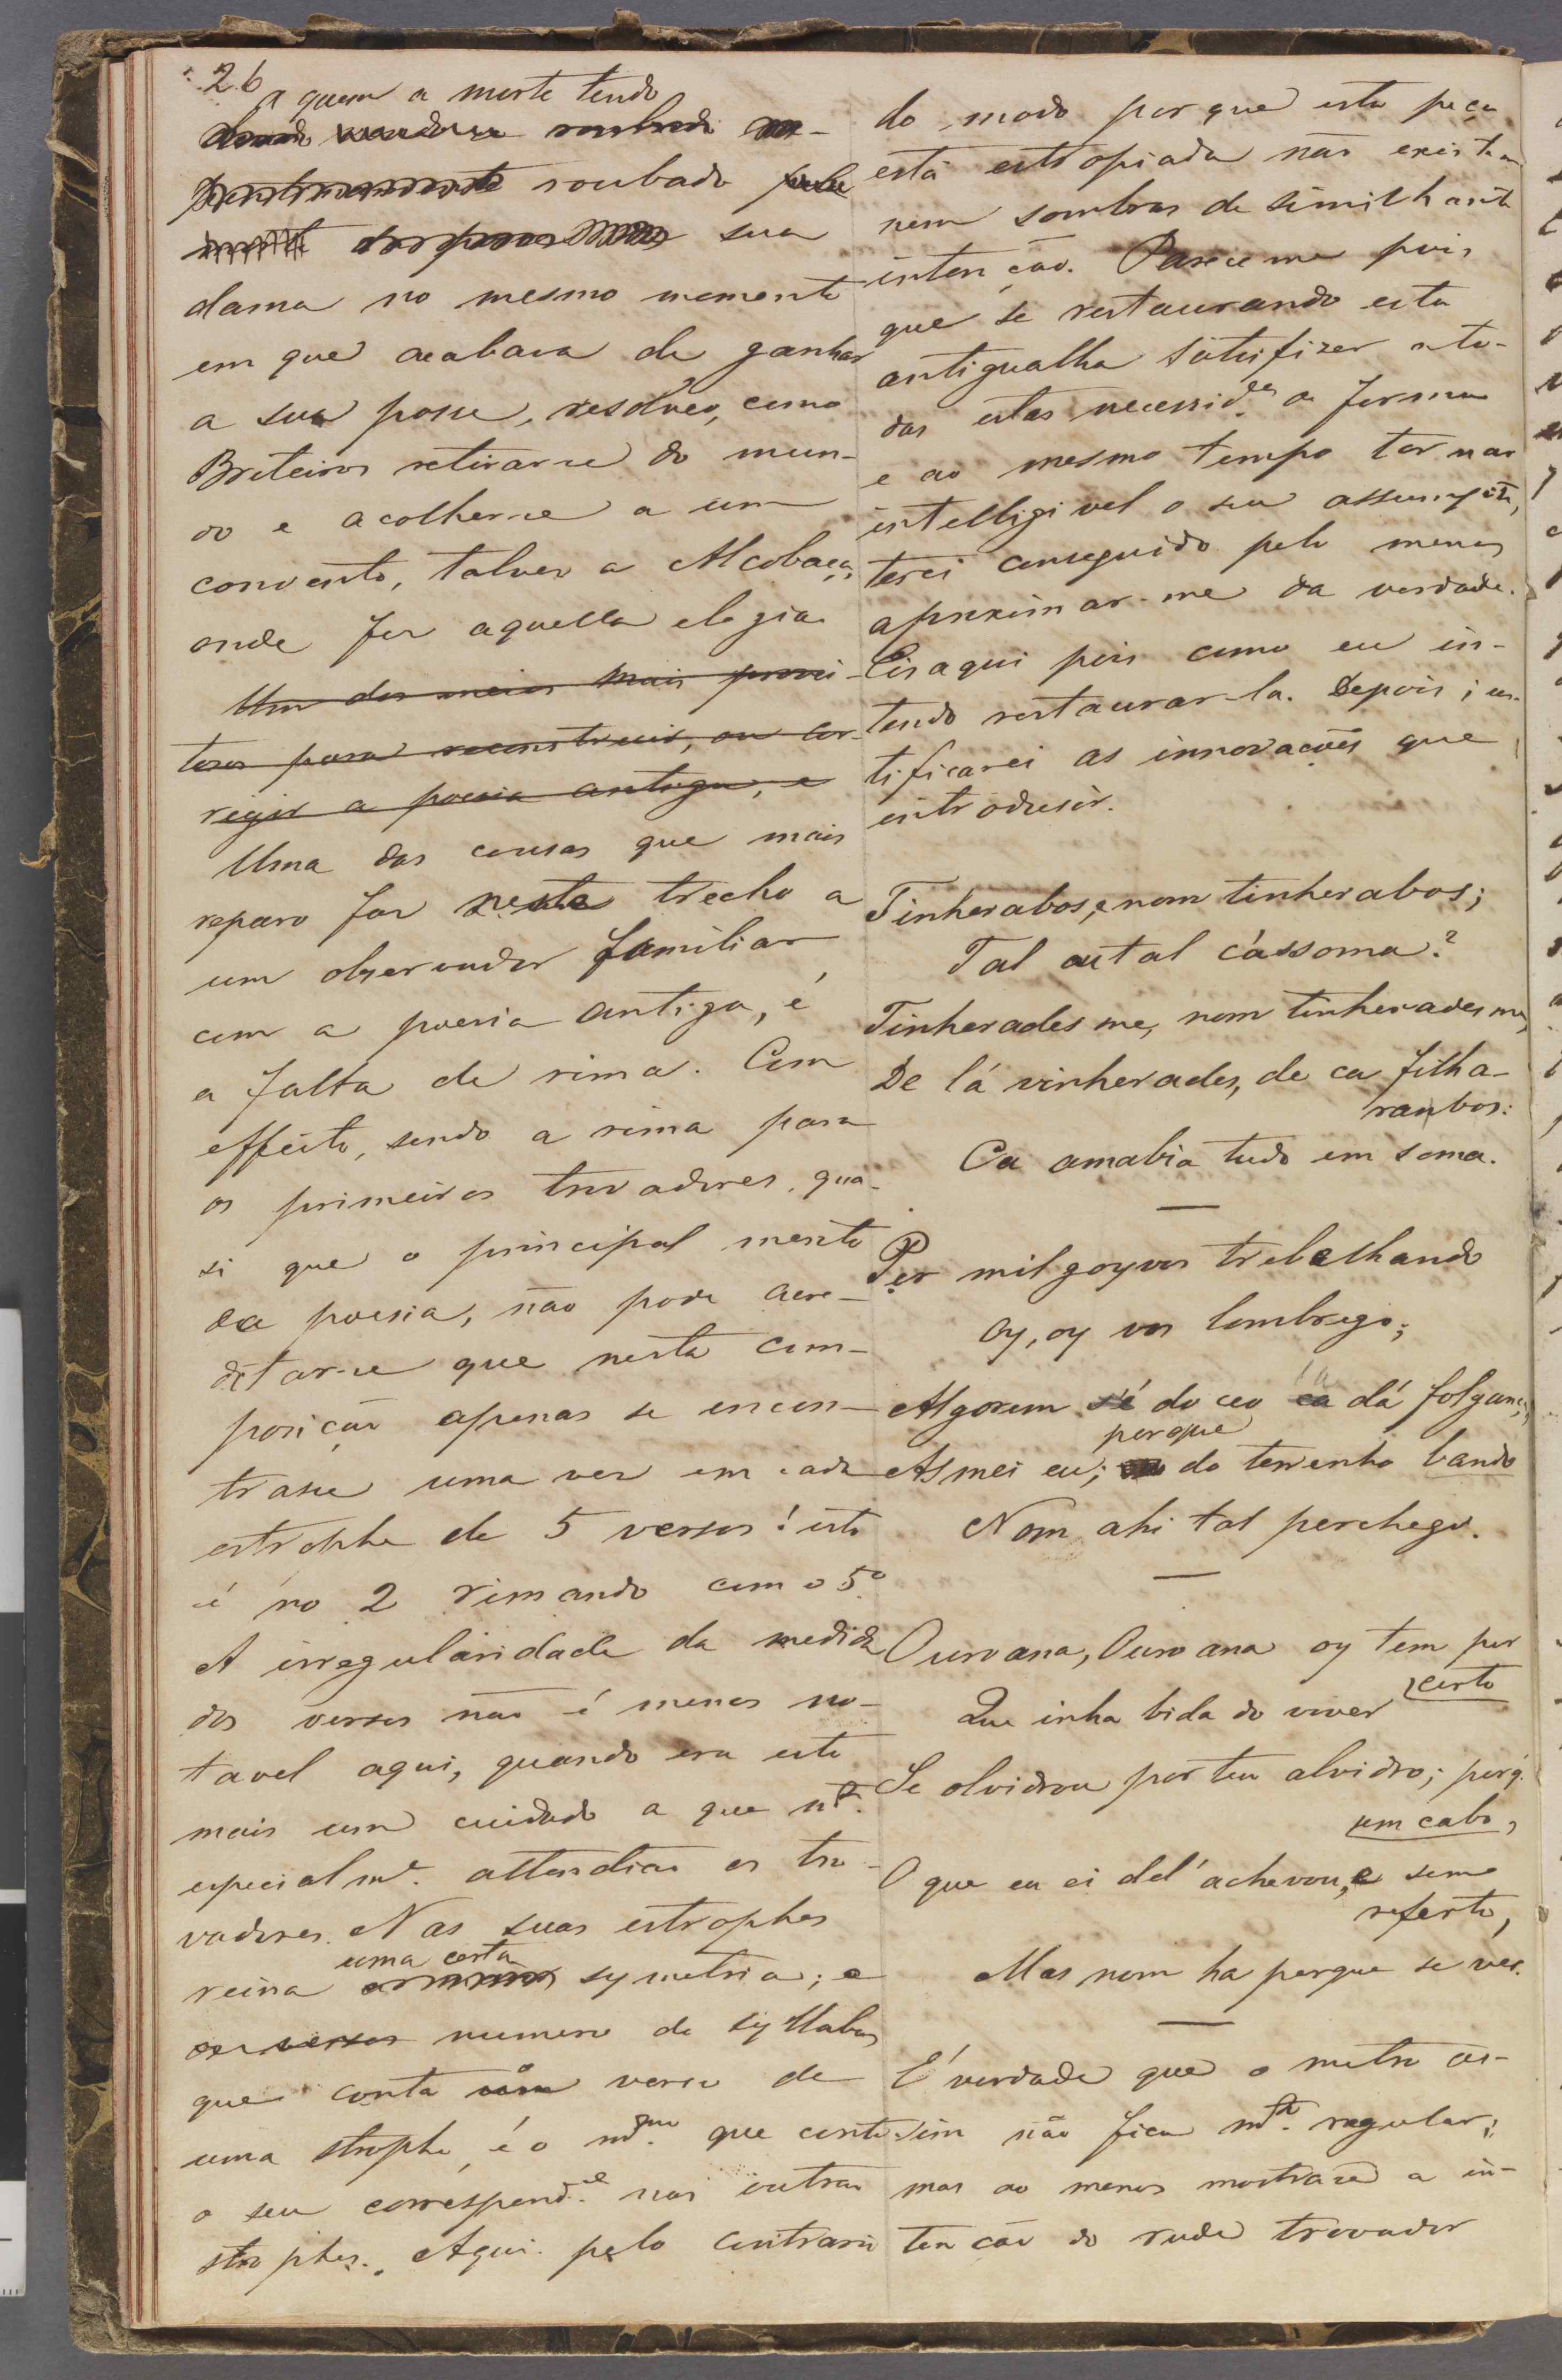 26
a quem a morte tendo
roubado
sua
dama no mesmo momento
em que acabava de ganhar
a sua posse, resolveo, como
Briteiros retirar-se do mun-
do e acolher-se a um
convento, talvez a Alcobaça,
onde fez aquella elegia
Um dos meios mais provei-
tosos para reconstruir, ou cor-
regir a poesia antiga, e
Uma das cousas que mais
reparo faz neste trecho a
um observador familiar
com a poesia antiga, é
a falta de rima. Com
effeito, sendo a rima para
os primeiros trovadores, qua-
si que o principal merito
da poesia, não pode acre-
ditar-se que nesta com-
posição apenas se encon-
trasse uma vez em cada
estrophe de 5 versos! isto
é no 2 rimando com o 5º
A irregularidade da medida
dos versos não é menos no-
tavel aqui, quando era este
mais um cuidado a que
especialmᵉ. attendião os tro-
vadores. Nas suas estrophes
uma certa
reina symetria; e
os versos numero de syllabas
que conta verso de
uma strophe, é o mᵐᵒ. que conta
o seu correspondᵉ nas outras
strophes. Aqui pelo contrario
do modo por que esta peça
está estropiada não existem
nem sombras de similhante
intenção. Parece me pois
que se restaurando esta
antigualha satisfizer a to-
das estas necessidᵉˢ da forma
e ao mesmo tempo tornar
intelligivel o seu assumpto,
terei conseguido pelo menos
aproximar-me da verdade.
Eis aqui pois como eu in-
tendo restaurar-la. Depois jus-
tificarei as innovações que
introdusir.
Tinherabos, e nom tinherabos;
Tal autal cássoma?
Tinherades me, nom tinherades me,
De lá vinherades, de ca filha-
ranbos:
Ca amabia tudo em soma.
Per mil goyvos trebelhando
Oy, oy vos lombrego;
Algorem sé do ceo ca dá folgança,
porque
Asmei eu; do terrenho bando
Nom ahi tal perchego.
Ouroana, Ouroana oy tem por
certo
Que inha bida do viver
Se olvidrou por teu alvidro; porq̃.
em cabo,
O que eu ei delá achevou, e seme
referto,
Mas nom ha porque se ver.
É verdade que o metro as-
sim não fica mᵗᵒ. regular;
mas ao menos mostrase a in-
tenção do rude trovador